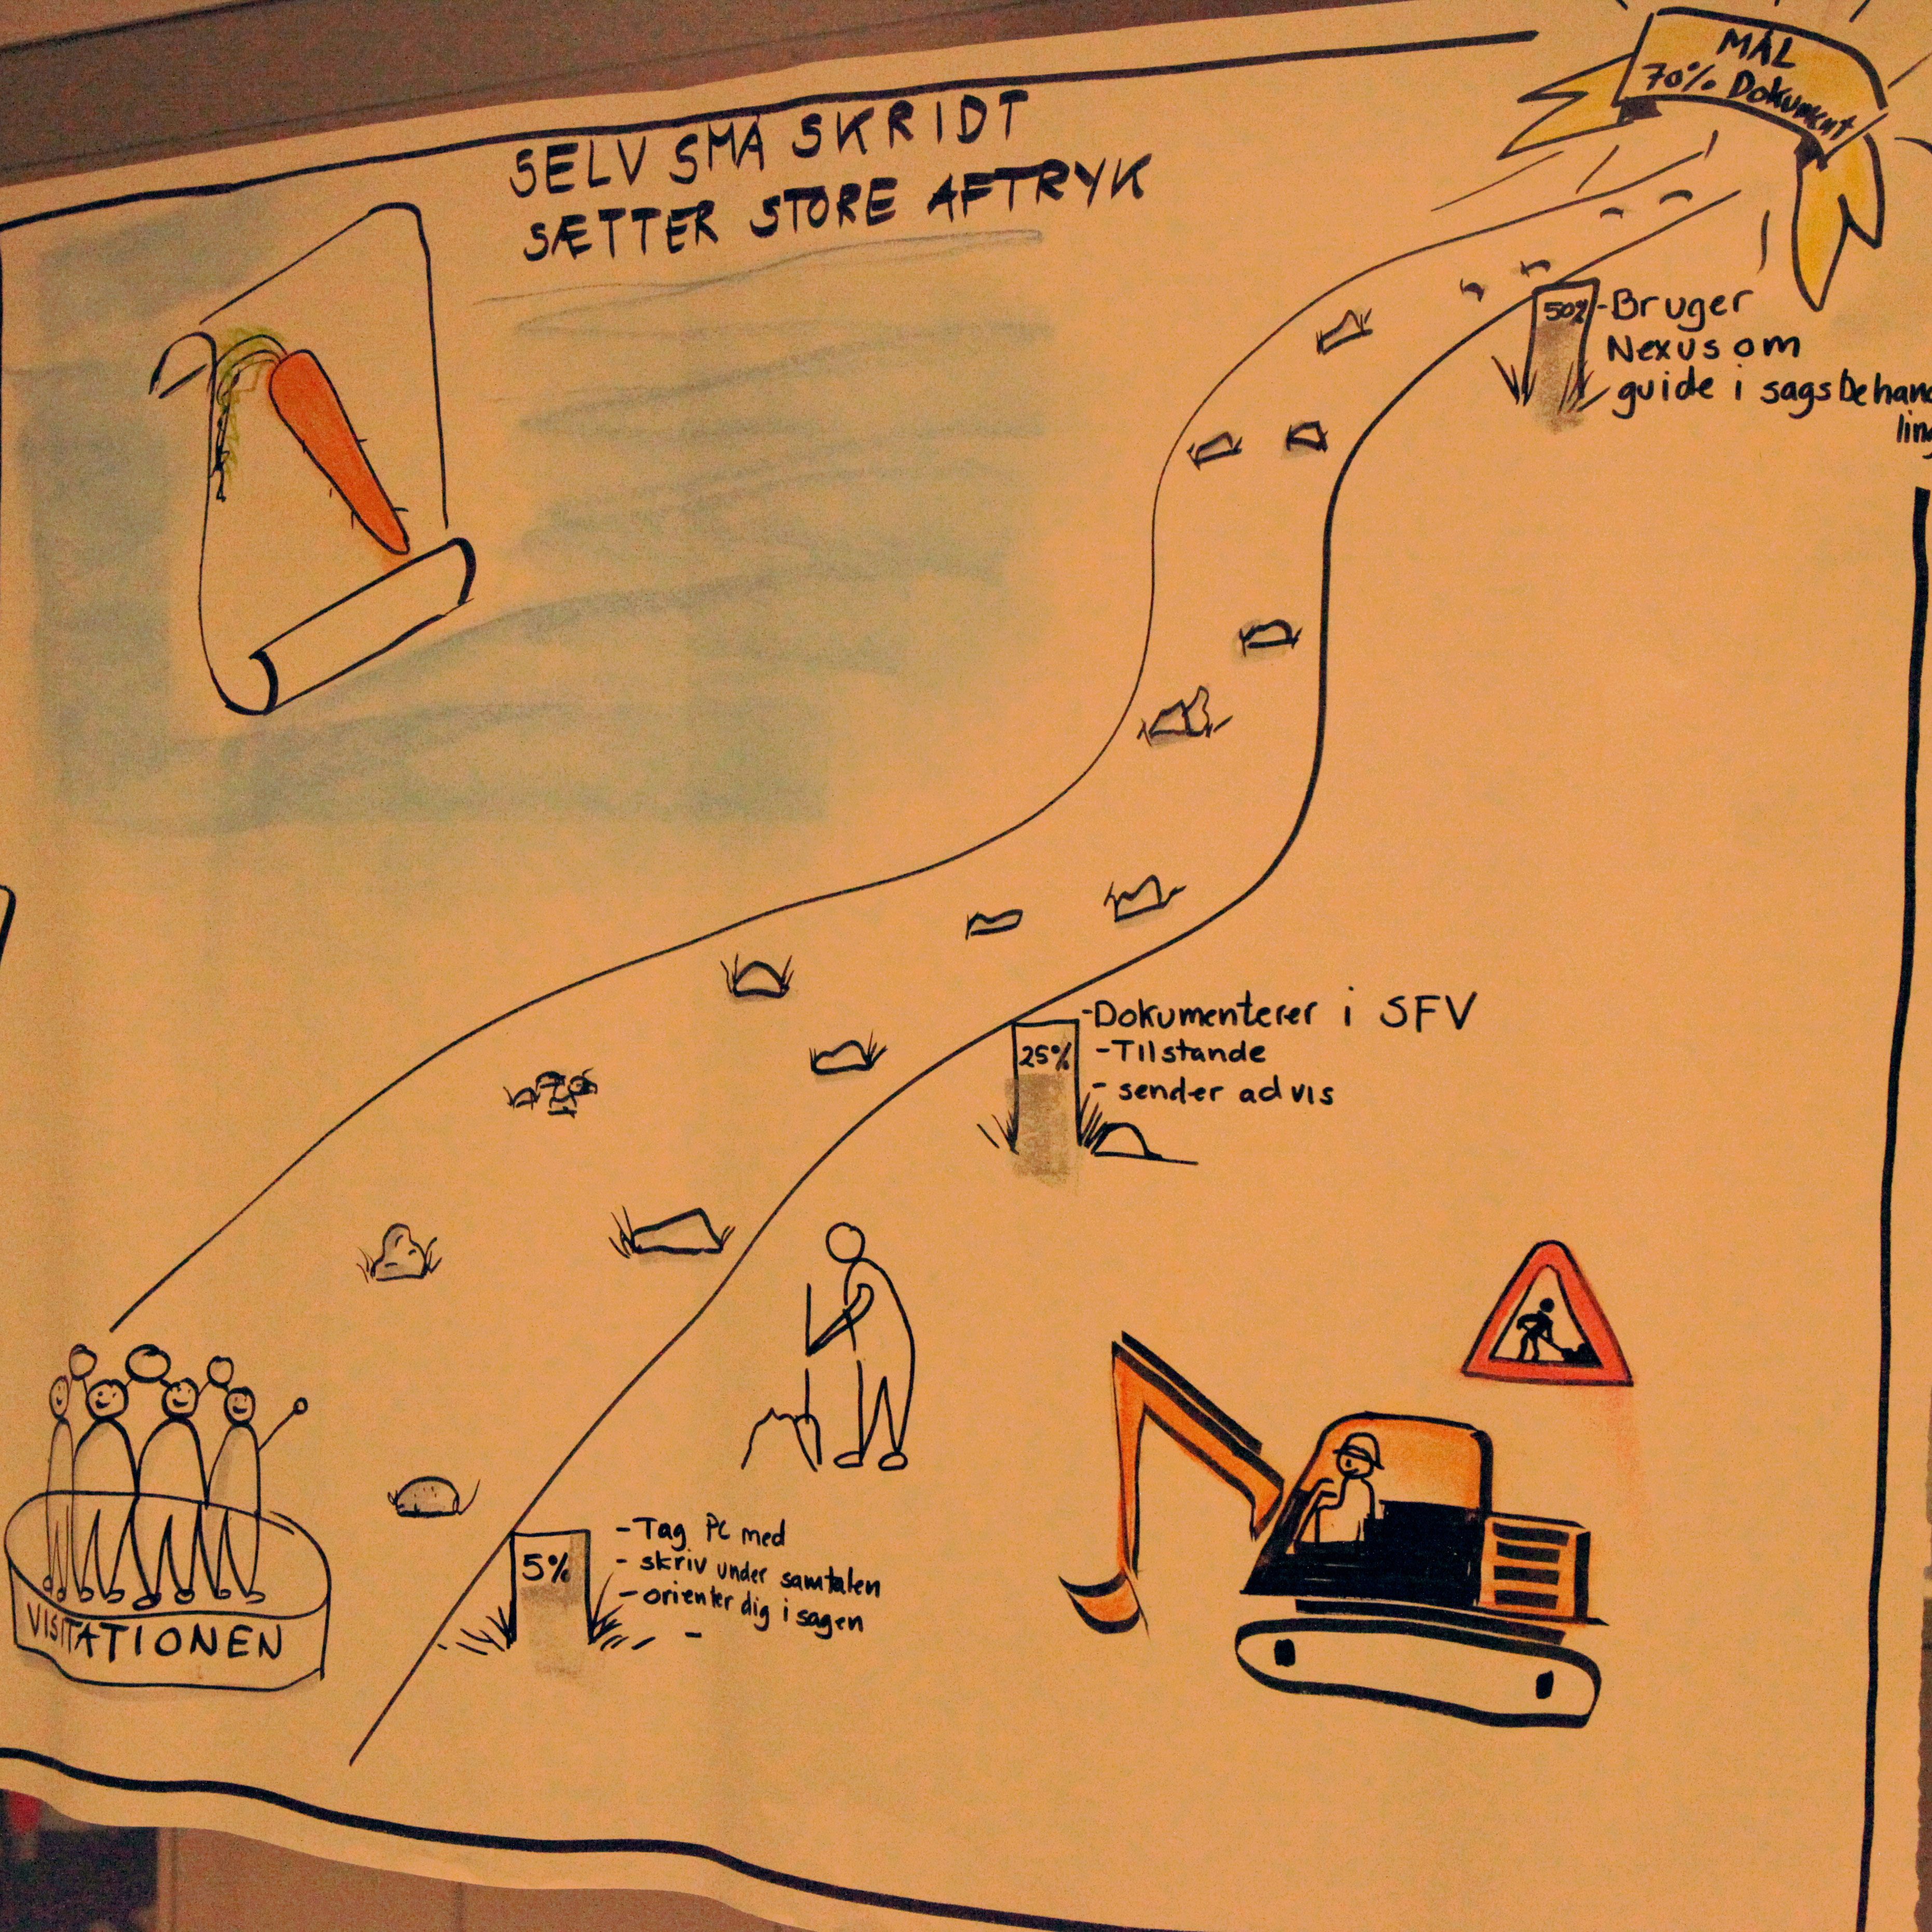 SELV SMÅ SKRIDT
SÆTTER STORE AFTRYK
MÅL
70% Dokument
50%
-Bruger
Nexus om
guide i sagsbehand
ling
25%
-Dokumenterer i SFV
-Tilstande
- sender advis
5%
-Tag PC med
- skriv under samtalen
-orienter dig i sagen
-
VISITATIONEN